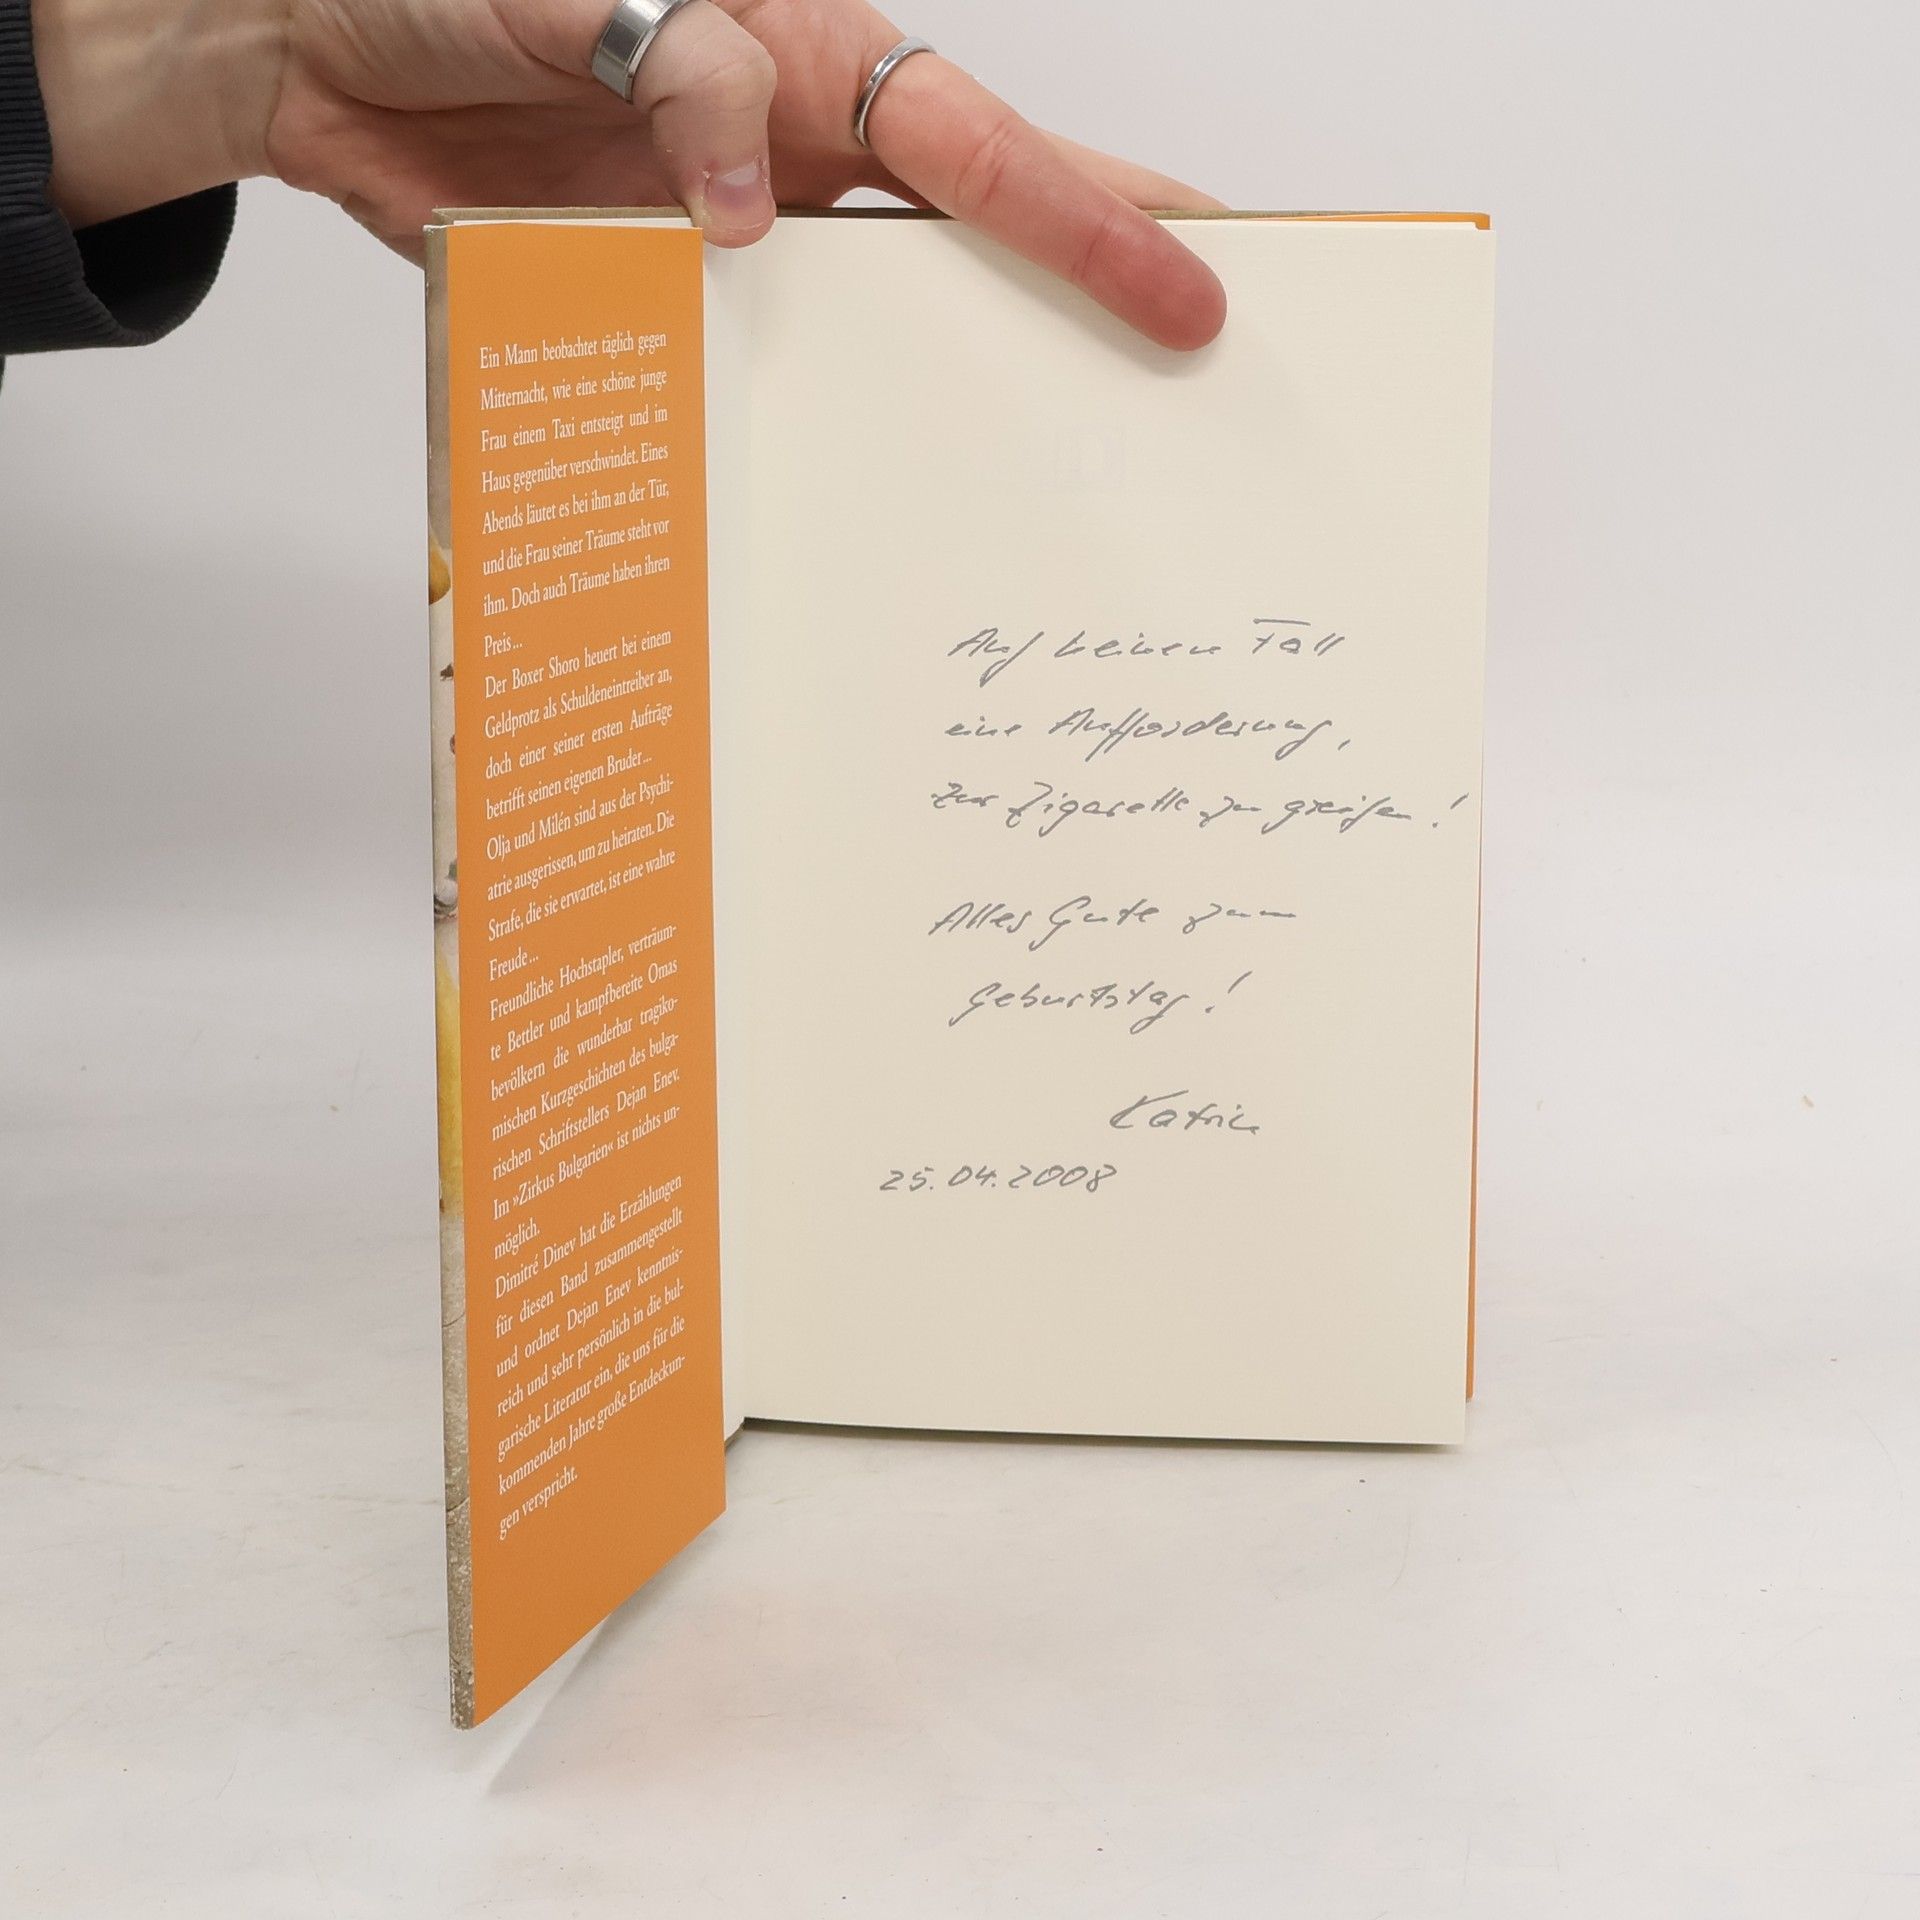 Ein Mann beobachtet täglich gegen
Mitternacht, wie eine schöne junge
Frau einem Taxi entsteigt und im
Haus gegenüber verschwindet. Eines
Abends läutet es bei ihm an der Tür,
und die Frau seiner Träume steht vor
ihm. Doch auch Träume haben ihren
Preis...
Der Boxer Shoro heuert bei einem
Geldprotz als Schuldeneintreiber an,
doch einer seiner ersten Aufträge
betrifft seinen eigenen Bruder...
Olja und Milén sind aus der Psychi-
atrie ausgerissen, um zu heiraten. Die
Strafe, die sie erwartet, ist eine wahre
Freude...
Freundliche Hochstapler, verträum-
te Bettler und kampfbereite Omas
bevölkern die wunderbar tragiko-
mischen Kurzgeschichten des bulga-
rischen Schriftstellers Dejan Enev.
Im »Zirkus Bulgarien« ist nichts un-
möglich.
Dimitré Dinev hat die Erzählungen
für diesen Band zusammengestellt
und ordnet Dejan Enev kenntnis-
reich und sehr persönlich in die bul-
garische Literatur ein, die uns für die
kommenden Jahre große Entdeckun-
gen verspricht.
Auf keinen Fall
eine Aufforderung,
zur Zigarette zu greifen!
Alles Gute zum
Geburtstag!
Katrin
25.04.2008